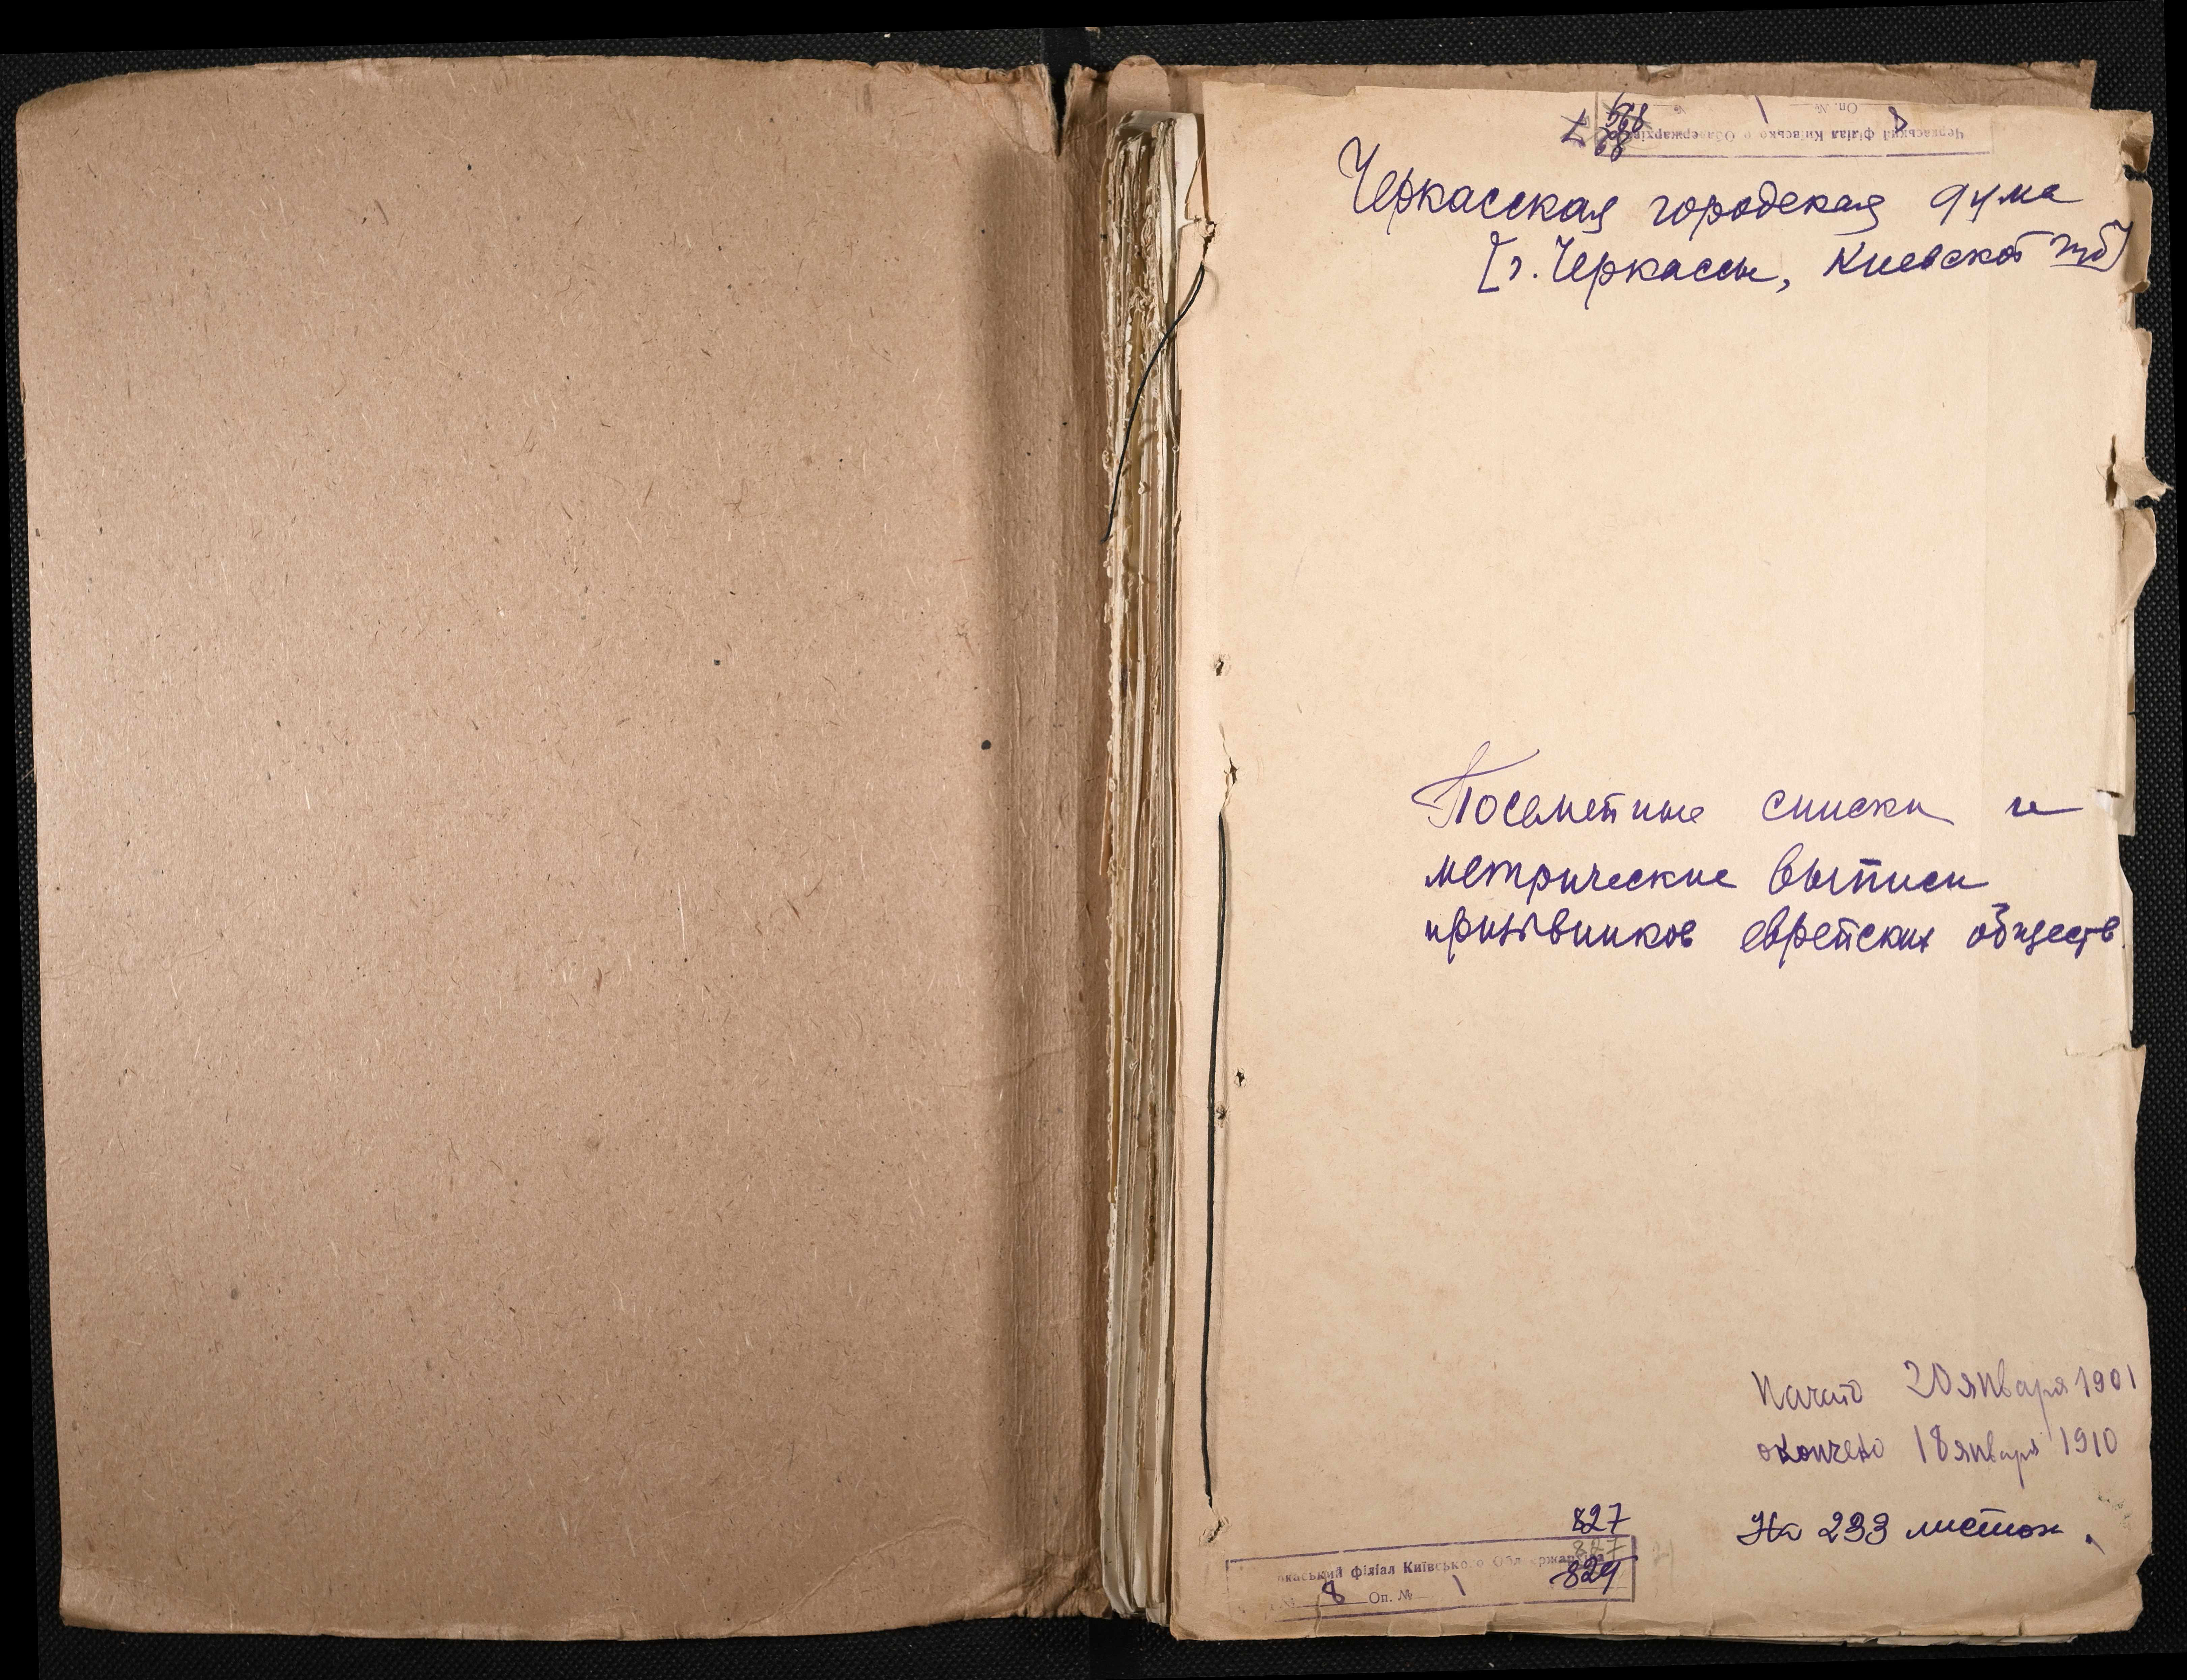 Черкаський філіал Київського Облдержархіва
Оп. № 1
8
Черкасская городская дума
[г. Черкассы, Киевской губ]
Посемейные списки и
метрические выписи
призывников еврейских обществ
Начато 20 января 1901
окончено 18 января 1910
На 233 листах.
827
827
824
каський філіал Київського Облдержархіва
8 Оп. № 1